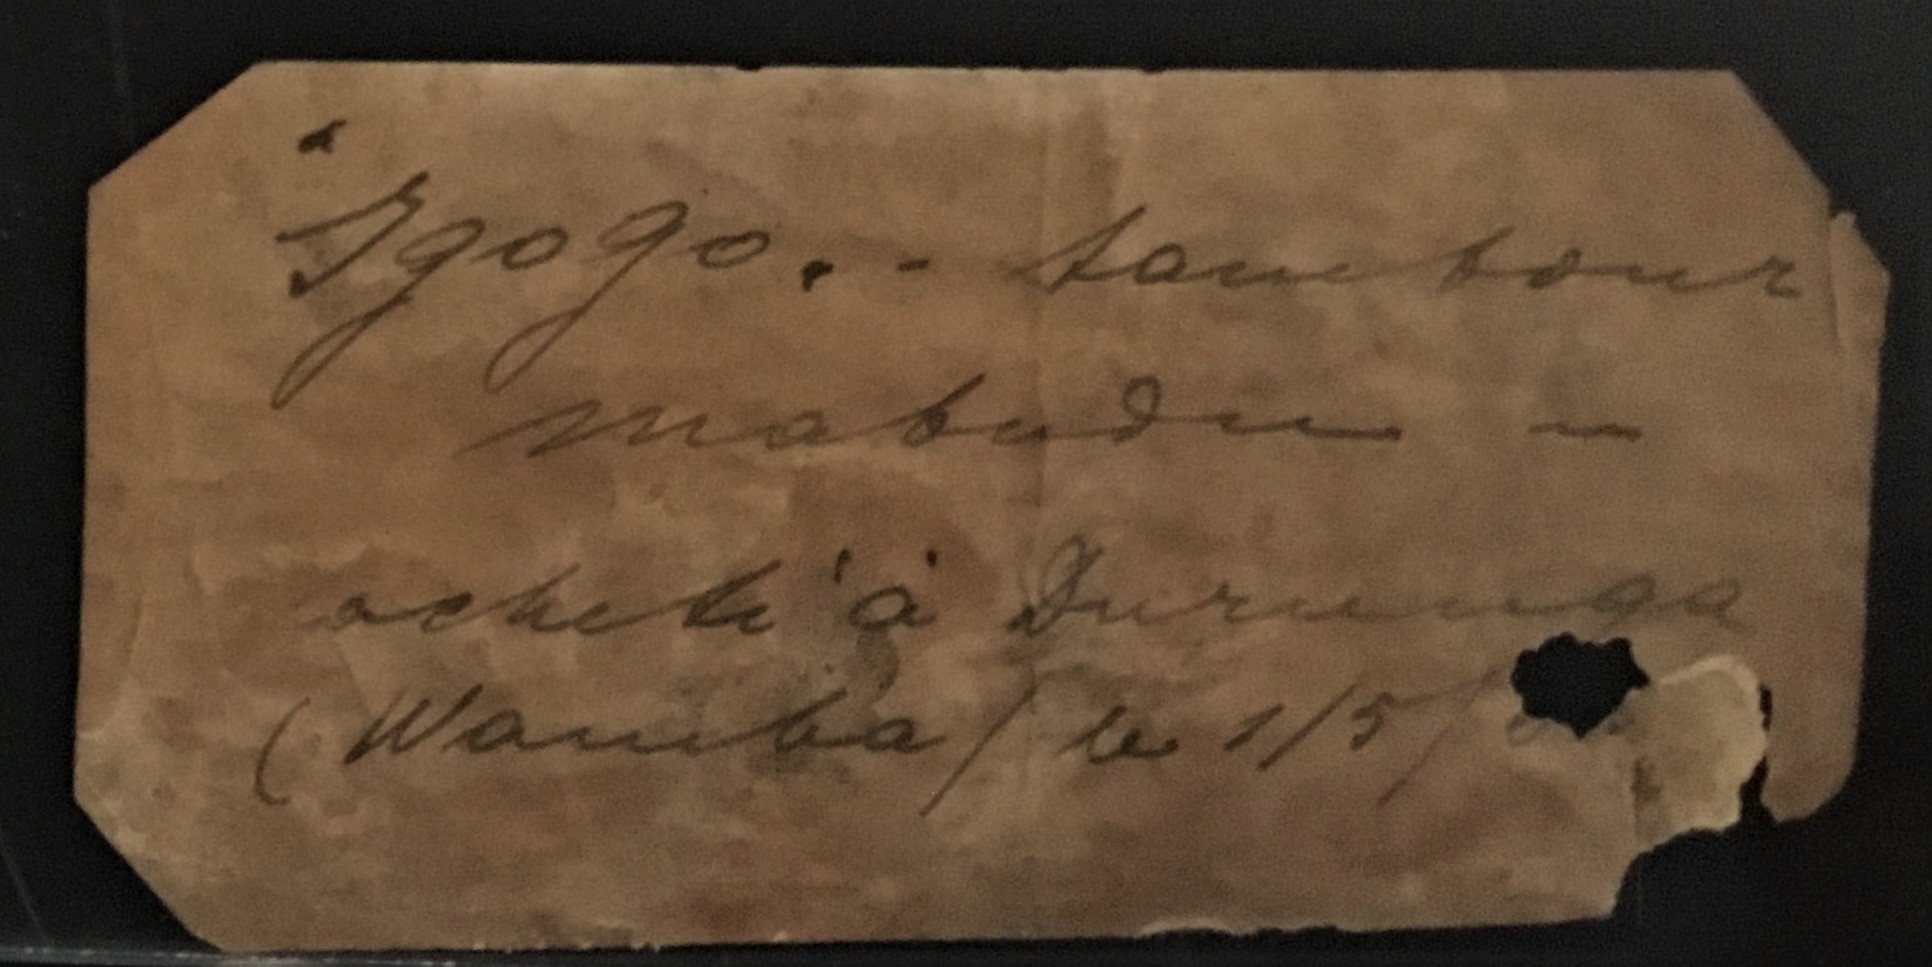 Igogo. - tambour
mabudu -
acheté à Durunga
(Wamba) le 1/5/